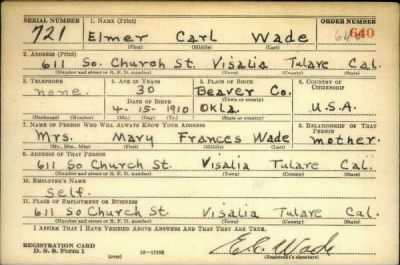 SERIAL NUMBER 1. NAME (Print) ORDER NUMBER
721 Elmer Carl Wade 640
(First) (Middle) (Last)
2. ADDRESS (Print)
611 So. Church St. Visalia Tulare Cal.
(Number and street or R. F. D. number) (Town) (County) (State)
3. TELEPHONE 4. AGE IN YEARS 5. PLACE OF BIRTH 6. COUNTRY OF CITIZENSHIP
none. 30 Beaver Co.
DATE OF BIRTH (Town or county)
4-15-1910 Okla. U.S.A.
(Exchange) (Number) (Mo.) (Day) (Yr.) (State or country)
7. NAME OF PERSON WHO WILL ALWAYS KNOW YOUR ADDRESS 8. RELATIONSHIP OF THAT PERSON
Mrs. Mary Frances Wade mother.
(Mr., Mrs., Miss) (First) (Middle) (Last)
9. ADDRESS OF THAT PERSON
611 So Church St. Visalia Tulare Cal.
(Number and street or R. F. D. number) (Town) (County) (State)
10. EMPLOYER'S NAME
Self.
11. PLACE OF EMPLOYMENT OR BUSINESS
611 So Church St. Visalia Tulare Cal.
(Number and street or R. F. D. number) (Town) (County) (State)
I AFFIRM THAT I HAVE VERIFIED ABOVE ANSWERS AND THAT THEY ARE TRUE.
REGISTRATION CARD
D. S. S. Form 1 (over) E.C. Wade
(Registrant's signature)